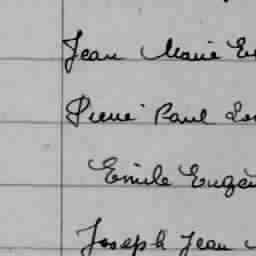 Jean Marie Eu
Pierre Paul Lou
Emile Eugèn
Joseph Jean